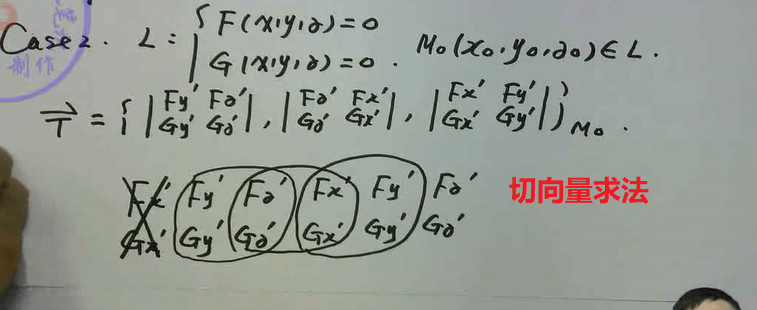 Case 2. L: { F(x,y,z)=0
G(x,y,z)=0. M₀(x₀,y₀,z₀)∈L.
T⃗ = { |Fy′ Fz′; Gy′ Gz′|, |Fz′ Fx′; Gz′ Gx′|, |Fx′ Fy′; Gx′ Gy′| }M₀.
Fx′ Fy′ Fz′ Fx′ Fy′ Fz′ 切向量求法
Gx′ Gy′ Gz′ Gx′ Gy′ Gz′
制作